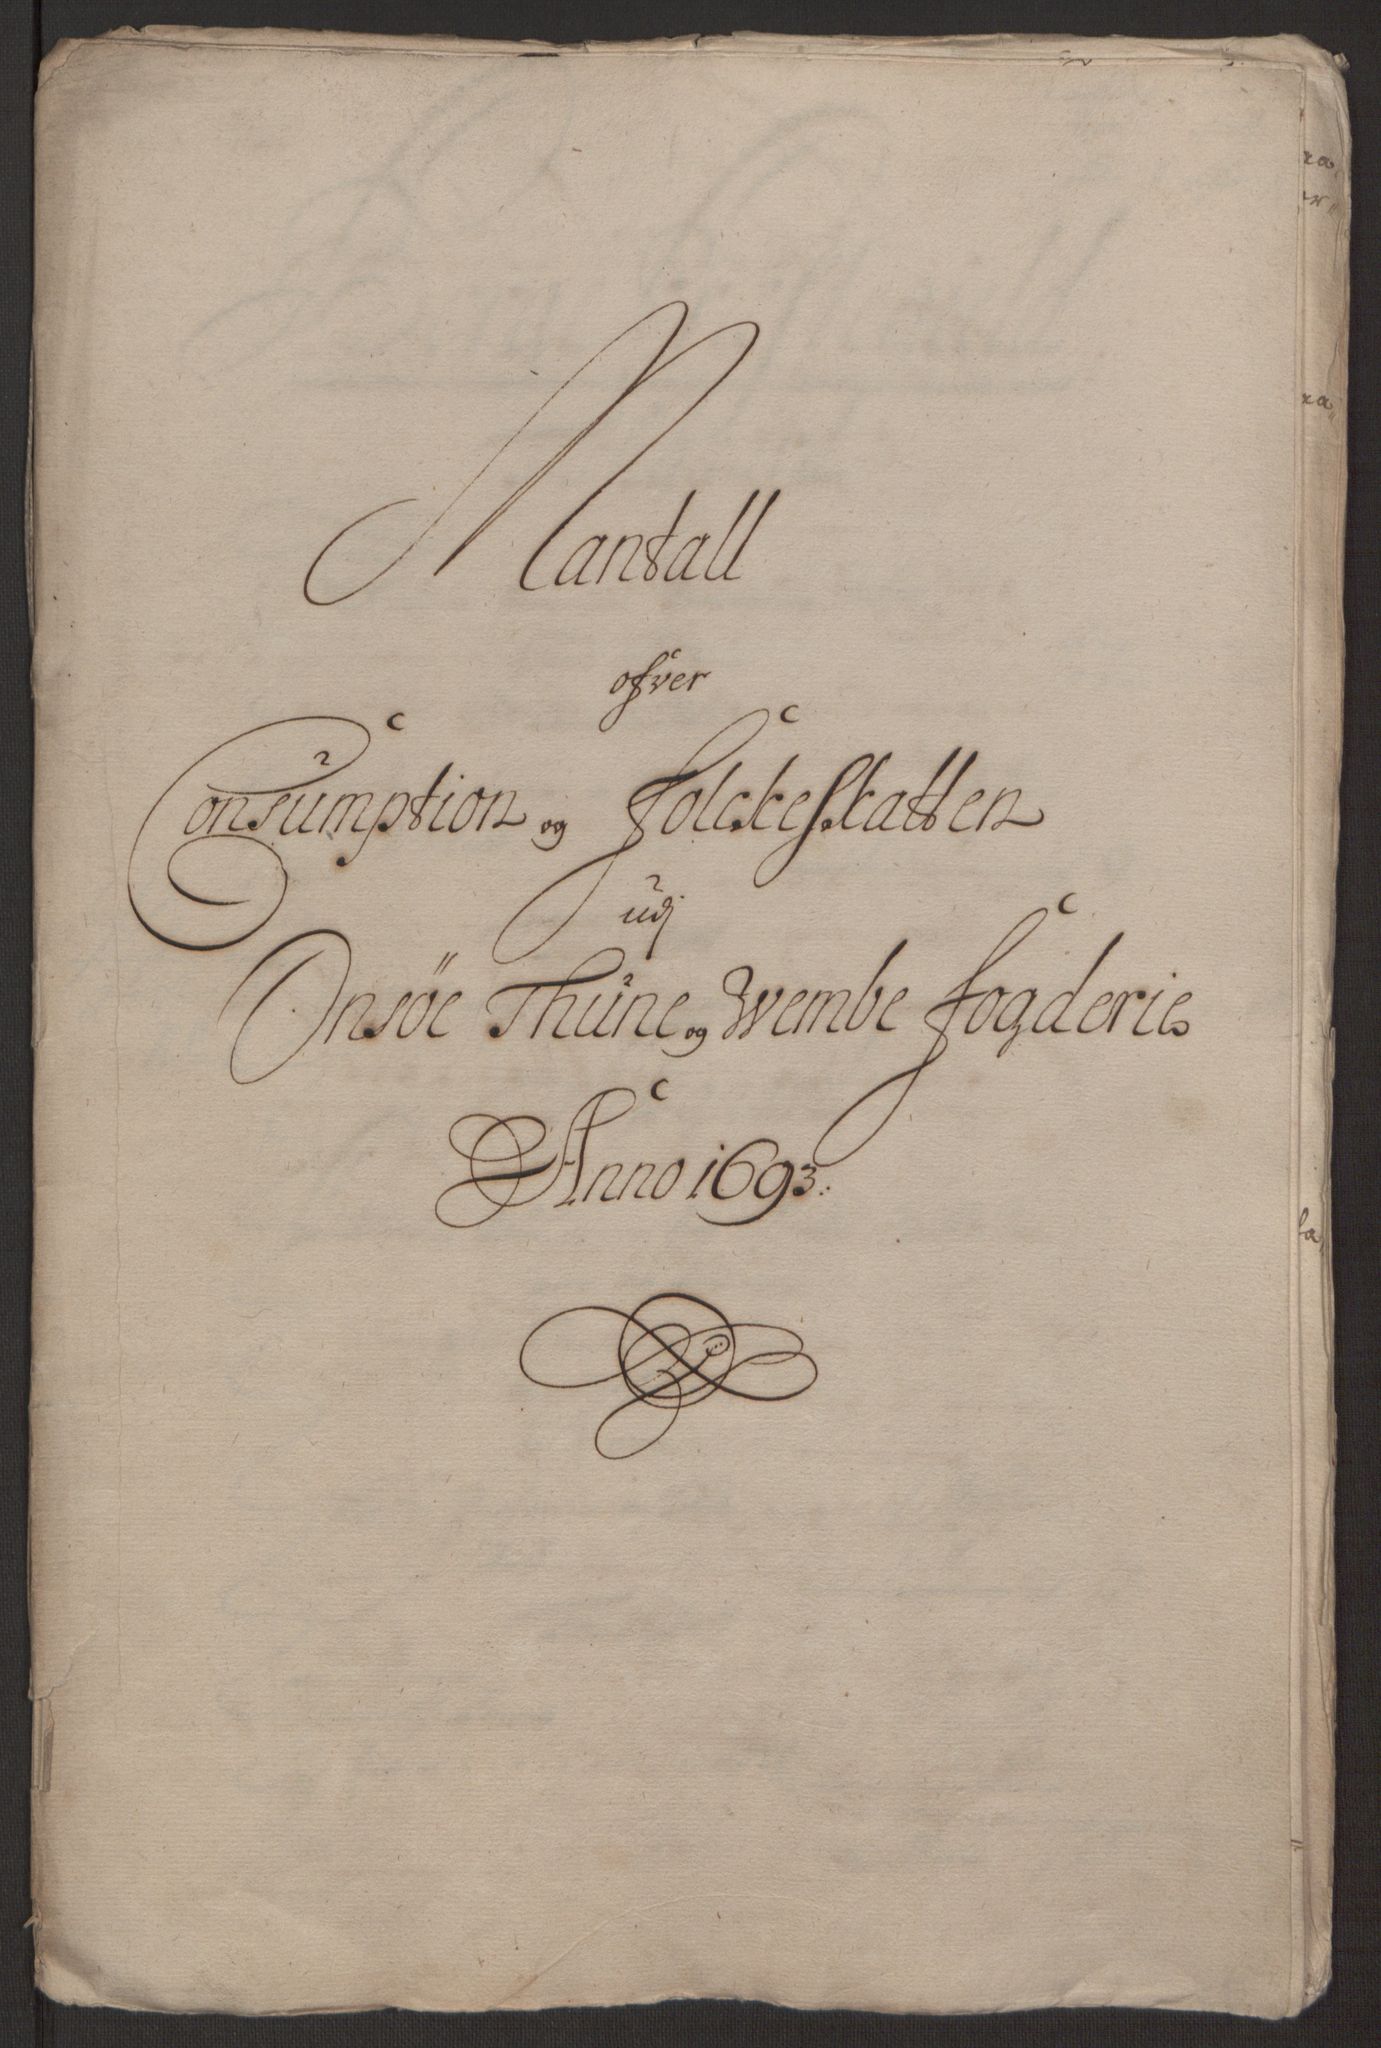 Mantall
ofver
Consumption og FolckeSkatten
udj
Onsøe Thune og Wembe fogderie
Anno 1693.